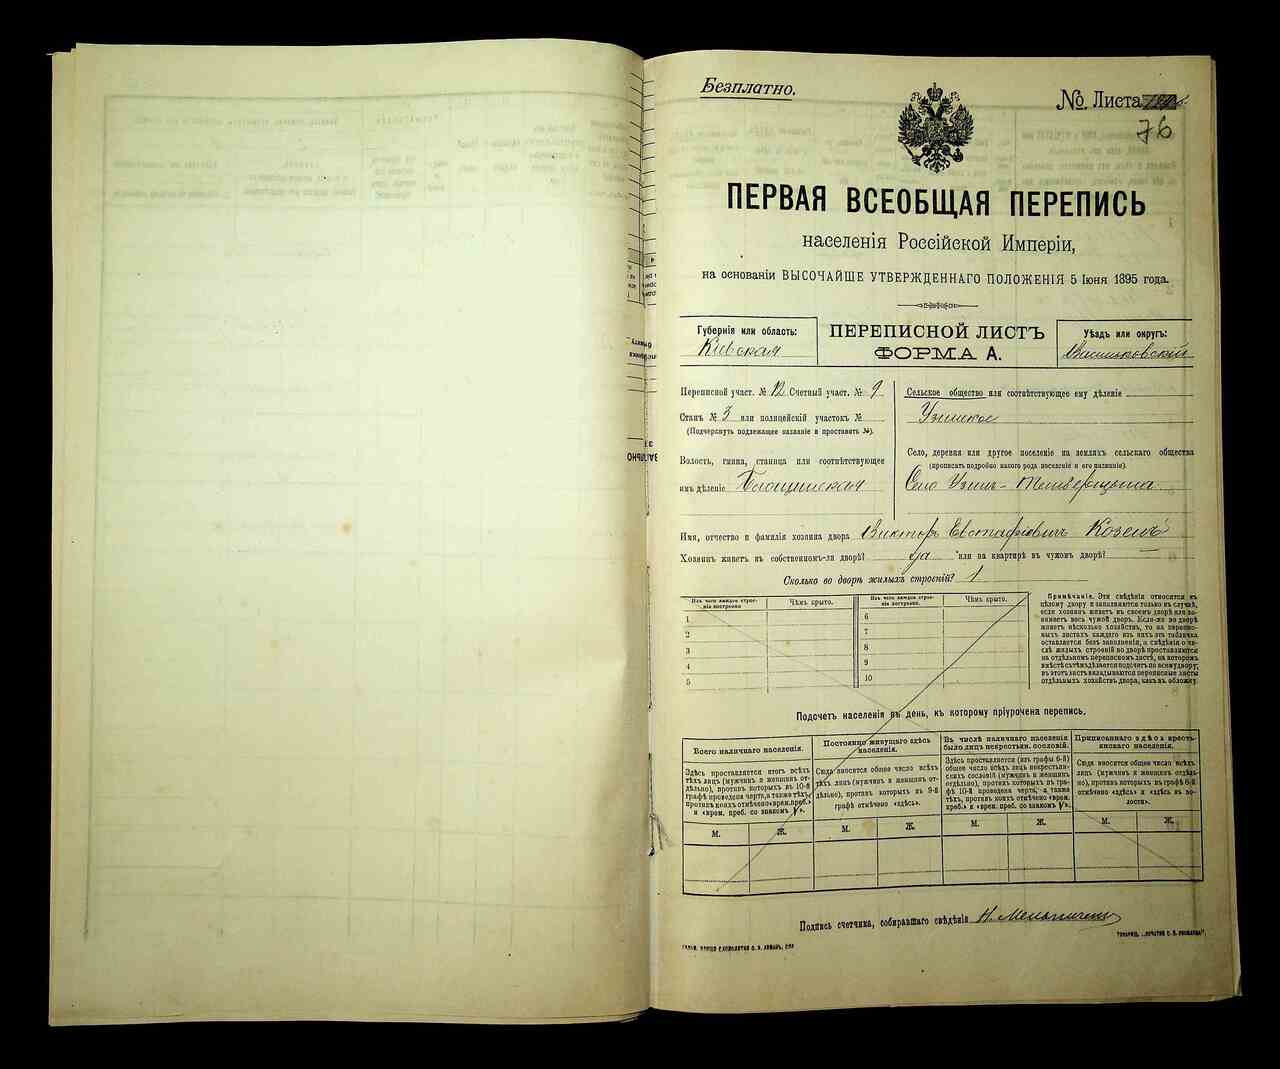 Безплатно.
№ Листа
76
ПЕРВАЯ ВСЕОБЩАЯ ПЕРЕПИСЬ
населенія Россійской Имперіи,
на основаніи ВЫСОЧАЙШЕ УТВЕРЖДЕННАГО ПОЛОЖЕНІЯ 5 Іюня 1895 года.
Губернія или область:
Кіевская
ПЕРЕПИСНОЙ ЛИСТЪ
ФОРМА А.
Уѣздъ или округъ:
Васильковскій
Переписной участ. № 12 Счетный участ. № 9
Станъ № 3 или полицейскій участокъ №
(Подчеркнуть подлежащее названіе и проставить №).
Волость, гмина, станица или соотвѣтствующее
имъ дѣленіе
Сельское общество или соотвѣтствующее ему дѣленіе
Узинское
Село, деревня или другое поселеніе на земляхъ сельскаго общества
(прописать подробно какого рода поселеніе и его названіе).
Село Узинъ-
Имя, отчество и фамилія хозяина двора Викторъ Евстафіевичъ
Хозяинъ живетъ въ собственномъ-ли дворѣ? да или на квартирѣ въ чужомъ дворѣ? —
Сколько во дворѣ жилыхъ строеній? 1
Изъ чего каждое строе-
ніе построено
Чѣмъ крыто.
1
2
3
4
5
Изъ чего каждое строе-
ніе построено.
Чѣмъ крыто.
6
7
8
9
10
Примѣчаніе. Эти свѣдѣнія относятся къ
цѣлому двору и заполняются только въ случаѣ,
если хозяинъ живетъ въ своемъ дворѣ или за-
нимаетъ весь чужой дворъ. Если-же во дворѣ
живетъ нѣсколько хозяйствъ, то на перепис-
ныхъ листахъ каждаго изъ нихъ эта табличка
оставляется безъ заполненія, а свѣдѣнія о чи-
слѣ жилыхъ строеній во дворѣ проставляются
на отдѣльномъ переписномъ листѣ, на которомъ
вмѣстѣ съ тѣмъ дѣлается подсчетъ по всему двору;
въ этотъ листъ вкладываются переписные листы
отдѣльныхъ хозяйствъ двора, какъ въ обложку.
Подсчетъ населенія въ день, къ которому пріурочена перепись.
Всего наличнаго населенія.
Здѣсь проставляется итогъ всѣхъ
тѣхъ лицъ (мужчинъ и женщинъ от-
дѣльно), противъ которыхъ въ 10-й
графѣ проведена черта, а также тѣхъ,
противъ коихъ отмѣчено «врем. преб.»
и «врем. преб. со знакомъ V».
М. Ж.
Постоянно живущаго здѣсь
населенія.
Сюда вносится общее число всѣхъ
лицъ (мужчинъ и женщинъ от-
дѣльно), противъ которыхъ въ 9-й
графѣ отмѣчено «здѣсь».
М. Ж.
Въ числѣ наличнаго населенія
было лицъ некрестьян. сословій.
Здѣсь проставляется (изъ графы 6-й)
общее число всѣхъ лицъ некрестьян-
скихъ сословій (мужчинъ и женщинъ
отдѣльно), противъ которыхъ въ гра-
фѣ 10-й проведена черта, а также
тѣхъ, противъ коихъ отмѣчено «врем.
преб.» и «врем. преб. со знакомъ V».
М. Ж.
Приписаннаго здѣсь кресть-
янскаго населенія.
Сюда вносится общее число всѣхъ
лицъ (мужчинъ и женщинъ отдѣль-
но), противъ которыхъ въ графѣ 8-й
отмѣчено «здѣсь» и «здѣсь въ во-
лости».
М. Ж.
Подпись счетчика, собиравшаго свѣдѣнія